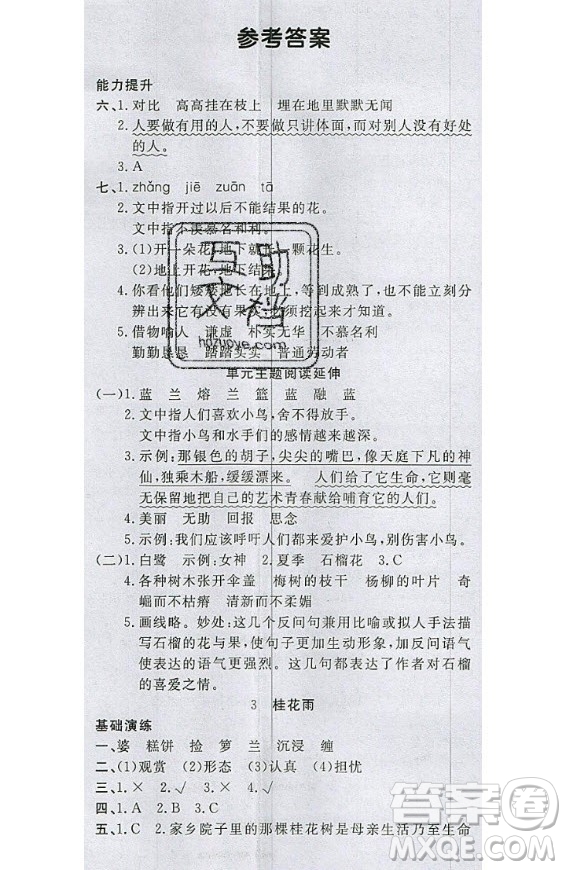 参考答案
能力提升
六、1. 对比　高高挂在枝上　埋在地里默默无闻
2. 人要做有用的人，不要做只讲体面，而对别人没有好处
的人。
3. A
七、1. zhǎng　jiē　zuān　tā
2. 文中指开过以后不能结果的花。
文中指不羡慕名和利。
3. (1)开一朵花，地下就 一颗花生。
(2)地上开花，地下结
4. 你看他们矮矮地长在地上，等到成熟了，也不能立刻分
辨出来它有没有果实，必须挖起来才知道。
5. 借物喻人　谦虚　朴实无华　不慕名利
勤勤恳恳　踏踏实实　普通劳动者
单元主题阅读延伸
(一)1. 蓝　兰　熔　兰　篮　蓝　融　蓝
2. 文中指人们喜欢小鸟，舍不得放手。
文中指小鸟和水手们的感情越来越深。
3. 示例：那银色的胡子，尖尖的嘴巴，像天庭下凡的神
仙，独乘木船，缓缓漂来。　人们给了它生命，它则毫
无保留地把自己的艺术青春献给哺育它的人们。
4. 美丽　无助　回报　思念
5. 示例：我们应该呼吁人们都来爱护小鸟。
(二)1. 白鹭　示例：女神　2. 夏季　石榴花　3. C
4. 各种树木张开伞盖　梅树的枝干　杨柳的叶片　奇
崛而不枯瘠　清新而不柔媚
5. 画线略。妙处：这几个反问句兼用比喻或拟人手法描
写石榴的花与果，使句子更加生动形象，加反问语气
使表达的语气更强烈。这几句都表达了作者对石榴
的喜爱之情。
3　桂花雨
基础演练
一、婆　糕饼　捡　萝　兰　沉浸　缠
二、(1)观赏　(2)形态　(3)认真　(4)担忧
三、1. ×　2. √　3. ×　4. √
四、1. A　2. B　3. C
五、1. C　2. 家乡院子里的那棵桂花树是母亲生活乃至生命
互助
文档
hdzuoye.com
答案圈
MXQE.COM